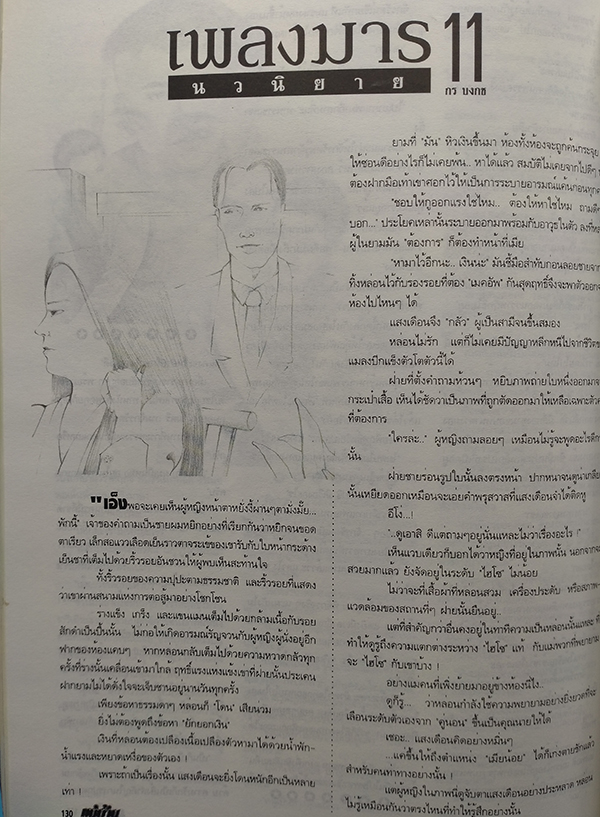 เพลงมาร 11
นวนิยาย
กร บงกช
"เอ็งพอจะเคยเห็นผู้หญิงหน้าตาหยั่งงี้ผ่านๆตามั่งมั้ย...
พักนี้" เจ้าของคำถามเป็นชายผมหยิกอย่างที่เรียกกันว่าหยิกจนขอด
ตาเรียว เล็กส่อแววเลือดเย็นราวตาจระเข้ของเขารับกับใบหน้ากระด้าง
เย็นชาที่เต็มไปด้วยริ้วรอยอันชวนให้ผู้พบเห็นสะท้านใจ
ทั้งริ้วรอยของความปุปะตามธรรมชาติ และริ้วรอยที่แสดง
ว่าเขาผ่านสนามแห่งการต่อสู้มาอย่างโชกโชน
ร่างแข็ง เกร็ง และแขนแมนเต็มไปด้วยกล้ามเนื้อกับรอย
สักดำเป็นปื้นนั้น ไม่ก่อให้เกิดอารมณ์รัญจวนกับผู้หญิงผู้นั่งอยู่อีก
ฟากของห้องแคบๆ หากหล่อนกลับเต็มไปด้วยความหวาดกลัวทุก
ครั้งที่ร่างนั้นเคลื่อนเข้ามาใกล้ ฤทธิ์แรงแห่งแข้งเขาที่ฝ่ายนั้นประเคน
ฝากยามไม่ได้ดั่งใจจะเจ็บชานอยู่นานวันทุกครั้ง
เพียงข้อหาธรรมดาๆ หล่อนก็ "โดน" เสียนวม
ยิ่งไม่ต้องพูดถึงข้อหา "ยักยอกเงิน"
เงินที่หล่อนต้องเปลืองเนื้อเปลืองตัวหามาได้ด้วยน้ำพัก-
น้ำแรงและหยาดเหงื่อของตัวเอง !
เพราะถ้าเป็นเรื่องนั้น แสงเดือนจะยิ่งโดนหนักอีกเป็นหลาย
เท่า !
ยามที่ "มัน" หิวเงินขึ้นมา ห้องทั้งห้องจะถูกค้นกระจุย
ให้ซ่อนดีอย่างไรก็ไม่เคยพ้น.. หาได้แล้ว สมบัติไม่เคยจากไปดีๆ
ต้องฝากมือเท้าเข่าศอกไว้ให้เป็นการระบายอารมณ์แค้นก่อนทุก
"ชอบให้กูออกแรงใช่ไหม.. ต้องให้หาใช่ไหม ถามดีๆ
บอก..." ประโยคเหล่านั้นระบายออกมาพร้อมกับอาวุธในตัว
ผู้ในยามมัน "ต้องการ" ก็ต้องทำหน้าที่เมีย
"หามาไว้อีกนะ.. เงินน่ะ" มันชี้มือสำทับก่อนลอยชายจาก
ทิ้งหล่อนไว้กับร่องรอยที่ต้อง "เมคอัพ" กันสุดฤทธิ์จึงจะพาตัวออก
ห้องไปไหนๆ ได้
แสงเดือนจึง "กลัว" ผู้เป็นสามีจนขึ้นสมอง
หล่อนไม่รัก แต่ก็ไม่เคยมีปัญญาหลีกหนีไปจากชีวิต
แมลงปีกแข็งตัวโตตัวนี้ได้
ฝ่ายที่ตั้งคำถามห้วนๆ หยิบภาพถ่ายใบหนึ่งออกมา
กระเป๋าเสื้อ เห็นได้ชัดว่าเป็นภาพที่ถูกตัดออกมาให้เหลือเฉพาะตัว
ที่ต้องการ
"ใครล่ะ.." ผู้หญิงถามลอยๆ เหมือนไม่รู้จะพูดอะไรดี
นั้น
ฝ่ายชายร่อนรูปใบนั้นลงตรงหน้า ปากหนาจนดูน่าเกลียด
นั้นเหยียดออกเหมือนจะเอ่ยคำพรุสวาทที่แสงเดือนจำได้ติดหู
อีโง่...!
"..ดูเอาสิ ดีแต่ถามๆอยู่นั่นแหละไม่ว่าเรื่องอะไร !"
เห็นแวบเดียวก็บอกได้ว่าหญิงที่อยู่ในภาพนั้น นอกจาก
สวยมากแล้ว ยังจัดอยู่ในระดับ "ไฮโซ" ไม่น้อย
ไม่ว่าจะที่เสื้อผ้าที่หล่อนสวม เครื่องประดับ หรือสภาพ
แวดล้อมของสถานที่ๆ ฝ่ายนั้นยืนอยู่..
แต่ที่สำคัญกว่าอื่นคงอยู่ในท่าทีความเป็นหล่อนนั่นแหละ
ทำให้ดูรู้ถึงความแตกต่างระหว่าง "ไฮโซ" แท้ กับแม่พวกที่พยายาม
จะ "ไฮโซ" กับเขาบ้าง !
อย่างแม่คนที่เพิ่งย้ายมาอยู่ข้างห้องนี่ไง..
ดูก็รู้... ว่าหล่อนกำลังใช้ความพยายามอย่างยิ่งยวดที่จะ
เลื่อนระดับตัวเองจาก "คุณอน" ขึ้นเป็นคุณนายให้ได้
เชอะ.. แสงเดือนคิดอย่างหมิ่นๆ
...แค่ขึ้นให้ถึงตำแหน่ง "เมียน้อย" ได้ก็เก่งตายชักแล้ว
สำหรับคนท่าทางอย่างนั้น !
แต่ผู้หญิงในภาพนี่ดูจับตาแสงเดือนอย่างประหลาด หล่อน
ไม่รู้เหมือนกันว่าตรงไหนที่ทำให้รู้สึกอย่างนั้น
130